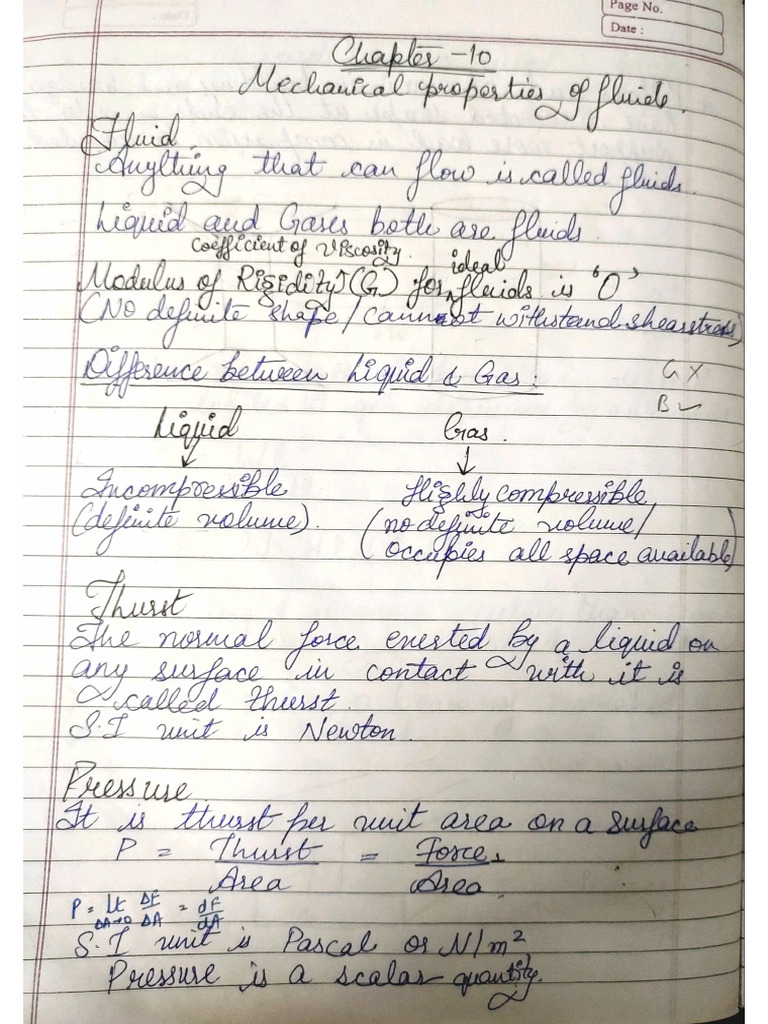 Page No.
Date :
Chapter -10
Mechanical properties of fluids.
Fluid.
Anything that can flow is called fluids.
Liquid and Gases both are fluids.
Coefficient of Viscosity. ideal
Modulus of Rigidity (G) for fluids is '0'
(No definite shape / cannot withstand shearstress)
Difference between Liquid & Gas:
G X
B ✓
Liquid Gas.
↓ ↓
Incompressible Highly compressible
(definite volume). (no definite volume/
occupies all space available)
Thurst
The normal force enerted by a liquid on
any surface in contact with it is
called thurst.
S.I unit is Newton.
Pressure
It is thurst per unit area on a surface
P = Thurst/Area = Force/Area.
P = Lt ΔA→0 ΔF/ΔA = dF/dA
S.I unit is Pascal or N/m²
Pressure is a scalar quantity.